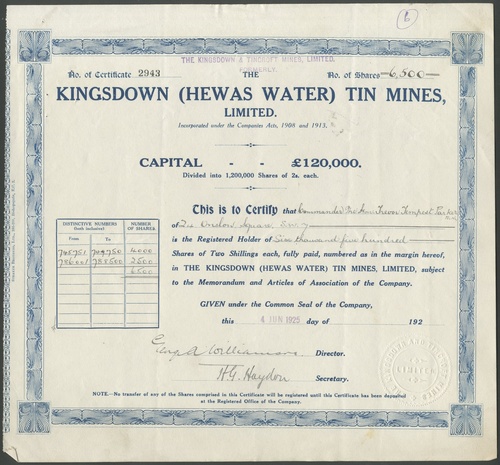 6
THE KINGSDOWN & TINCROFT MINES, LIMITED.
FORMERLY.
No. of Certificate 2943 THE No. of Shares 6,500
KINGSDOWN (HEWAS WATER) TIN MINES,
LIMITED.
Incorporated under the Companies Acts, 1908 and 1913.
CAPITAL - - £120,000.
Divided into 1,200,000 Shares of 2s. each.
This is to Certify that Commander The Hon. Trevor Tempest Parker
of Onslow Square
is the Registered Holder of Six thousand five hundred
Shares of Two Shillings each, fully paid, numbered as in the margin hereof,
in THE KINGSDOWN (HEWAS WATER) TIN MINES, LIMITED, subject
to the Memorandum and Articles of Association of the Company.
DISTINCTIVE NUMBERS (both inclusive) NUMBER OF SHARES
From To
709750 4000
786001 788500 2500
6500
GIVEN under the Common Seal of the Company,
this 4 JUN 1925 day of 192
Williamson Director.
H.G. Haydon Secretary.
LIMITED
NOTE.—No transfer of any of the Shares comprised in this Certificate will be registered until this Certificate has been deposited
at the Registered Office of the Company.